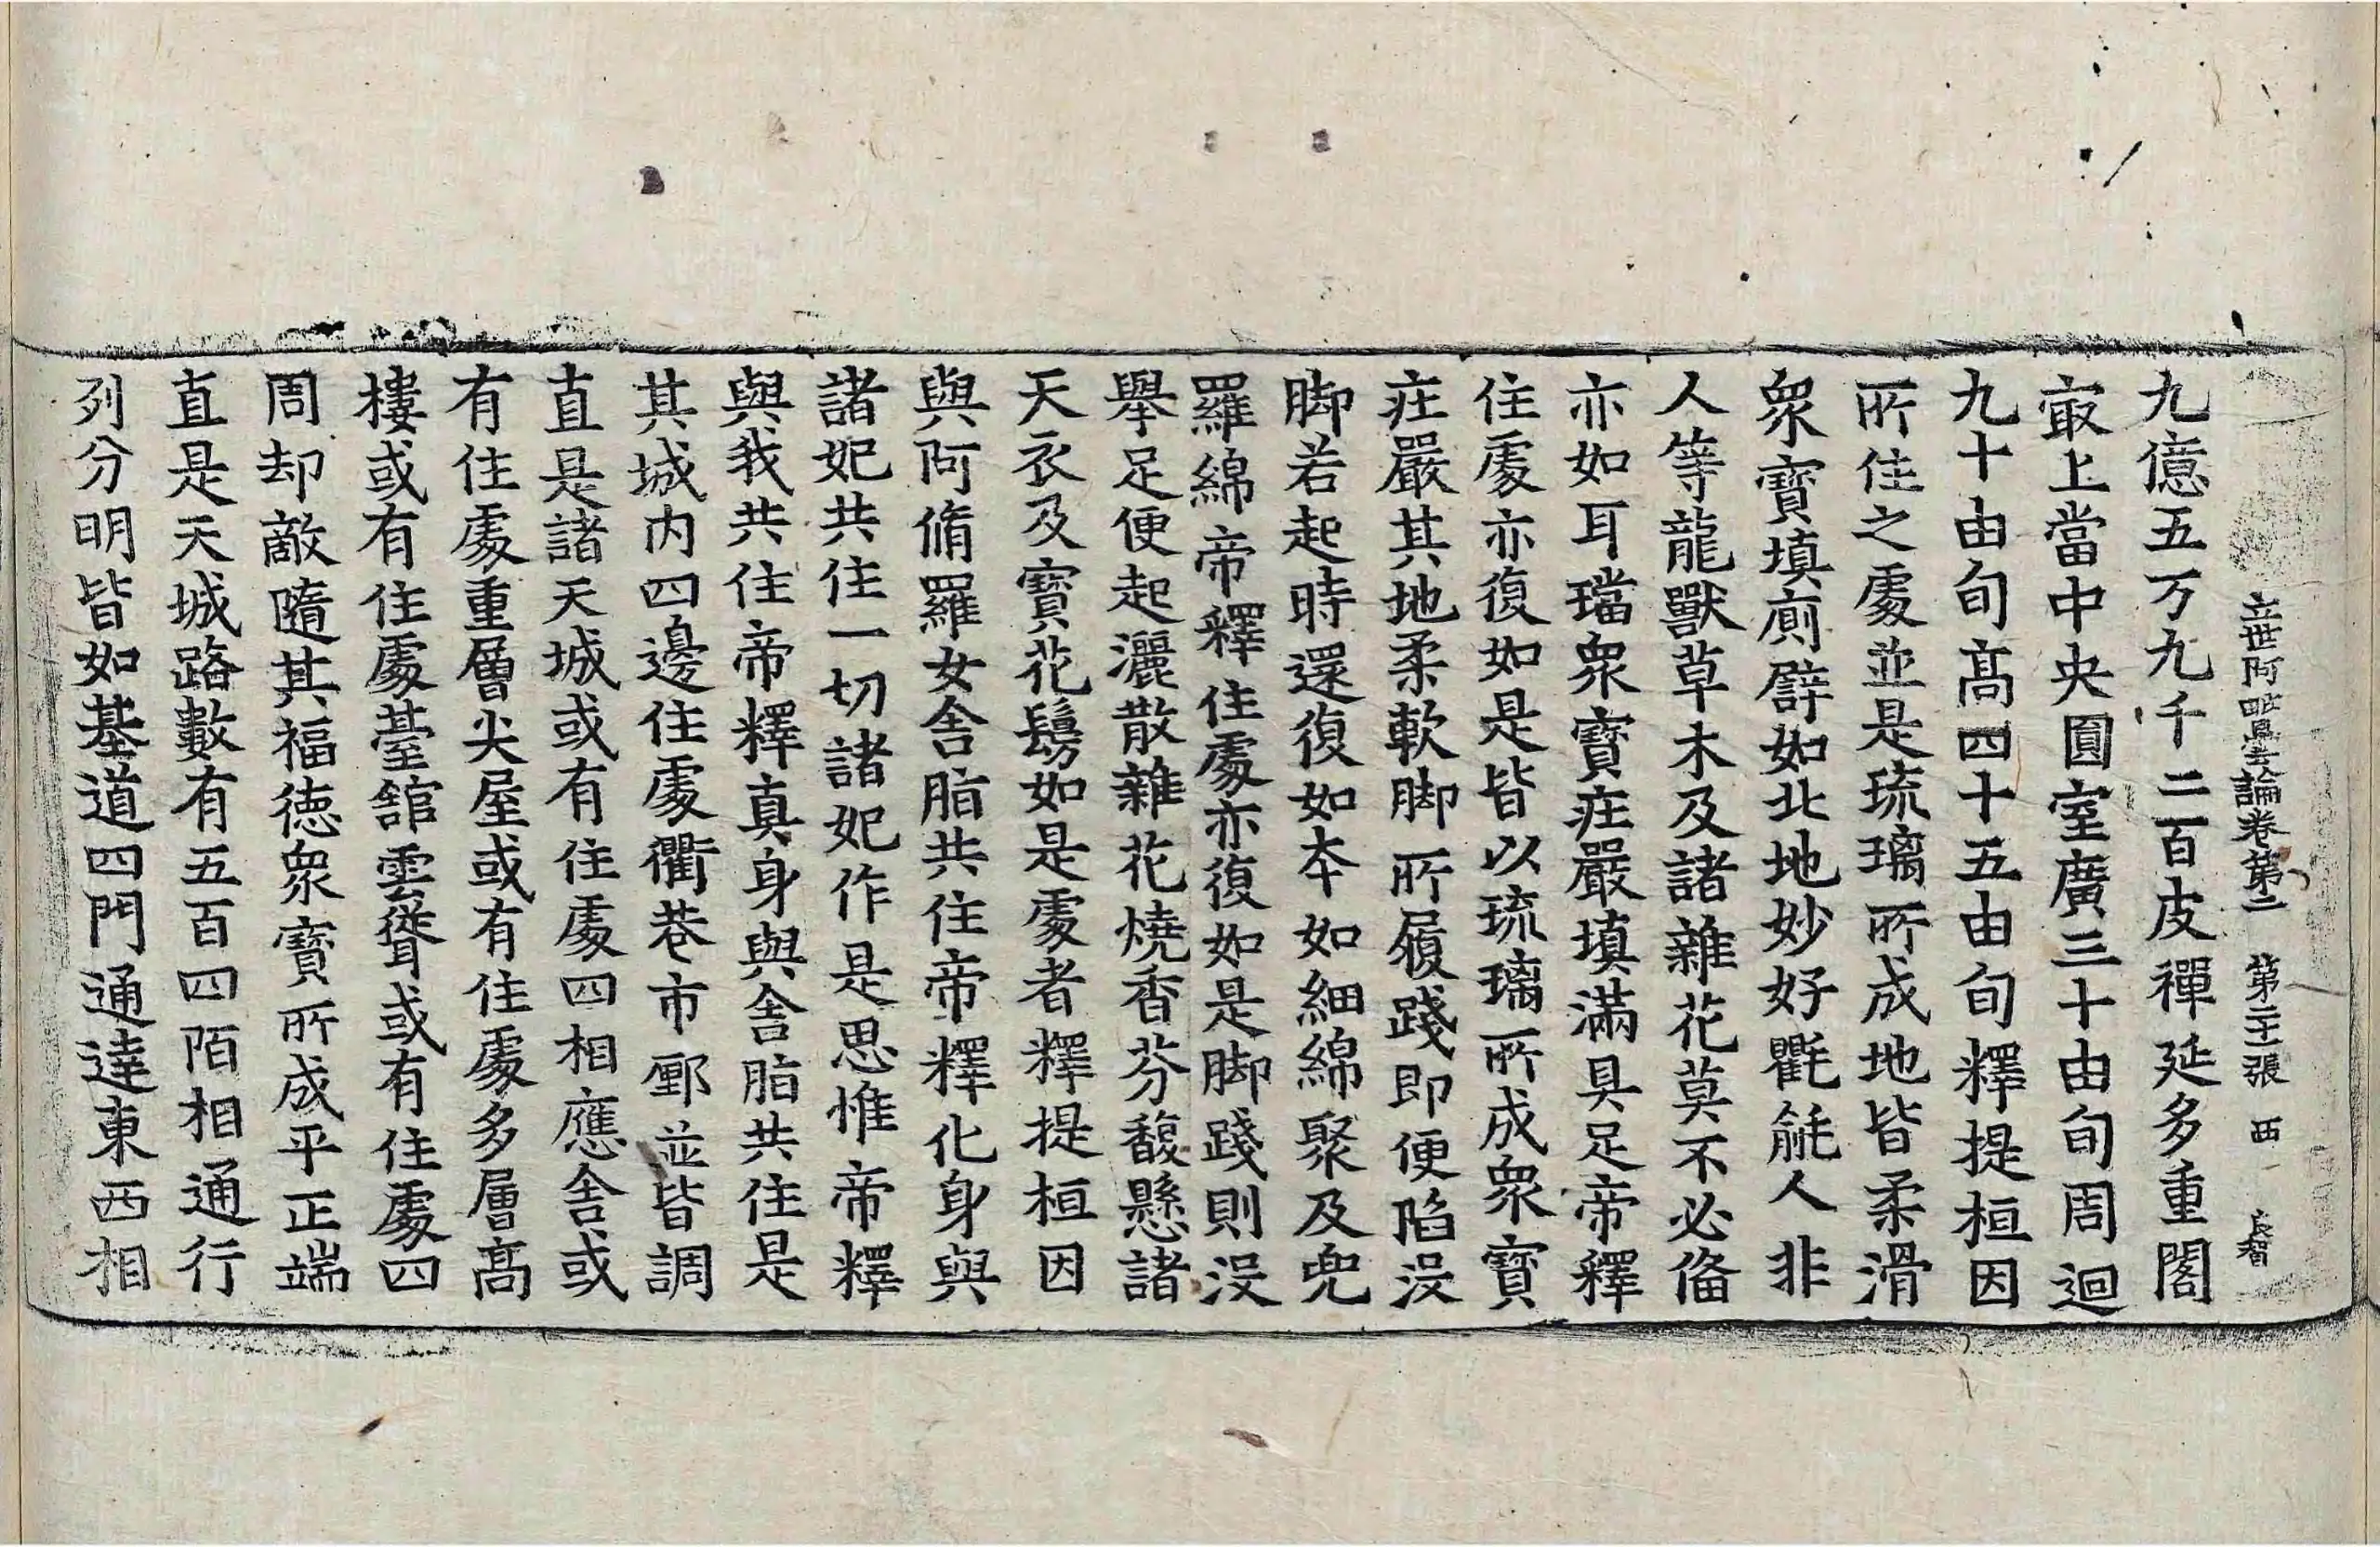 立世阿毗曇論卷第二 第二十張 西
九億五万九千二百皮禪延多重閣
㝡上當中央圓室廣三十由旬周迴
九十由旬髙四十五由旬釋提桓因
所住之處並是琉璃所成地皆柔滑
衆寶填廁譬如北地妙好氍毹人非
人等龍獸草木及諸雜花莫不必俻
亦如耳璫衆寶莊嚴填滿具足帝釋
住處亦復如是皆以琉璃所成衆寶
莊嚴其地柔軟脚所履踐即便陷没
脚若起時還復如本如細綿聚及兜
羅綿帝釋住處亦復如是脚踐則没
舉足便起灑散雜花燒香芬馥懸諸
天衣及寶花鬘如是處者釋提桓因
與阿脩羅女舎脂共住帝釋化身與
諸妃共住一切諸妃作是思惟帝釋
與我共住帝釋真身與舎脂共住是
其城内四邊住處衢巷市鄽並皆調
直是諸天城或有住處四相應舎或
有住處重層尖屋或有住處多層髙
樓或有住處臺舘雲聳或有住處四
周却敵隨其福德衆寶所成平正端
直是天城路數有五百四陌相通行
列分明皆如基道四門通達東西相